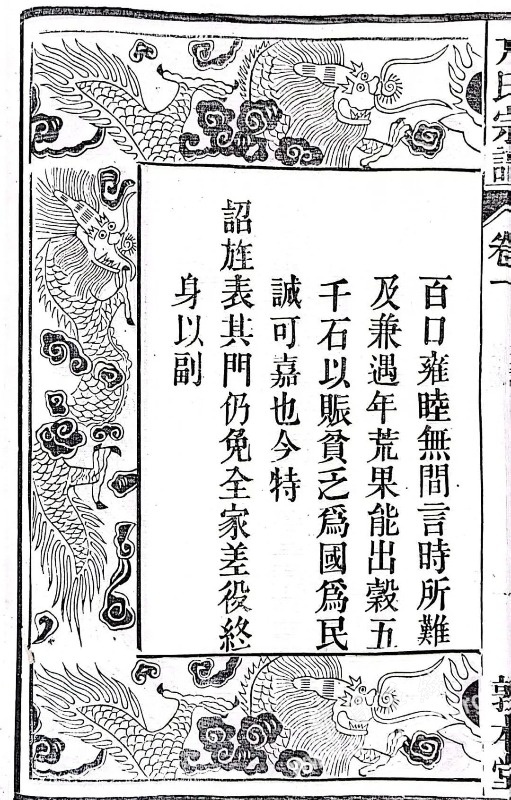 氏宗譜
卷一
百口雍睦無間言時所難
及兼遇年荒果能出穀五
千石以賑貧乏爲國爲民
誠可嘉也今特
詔旌表其門仍免全家差役終
身以副